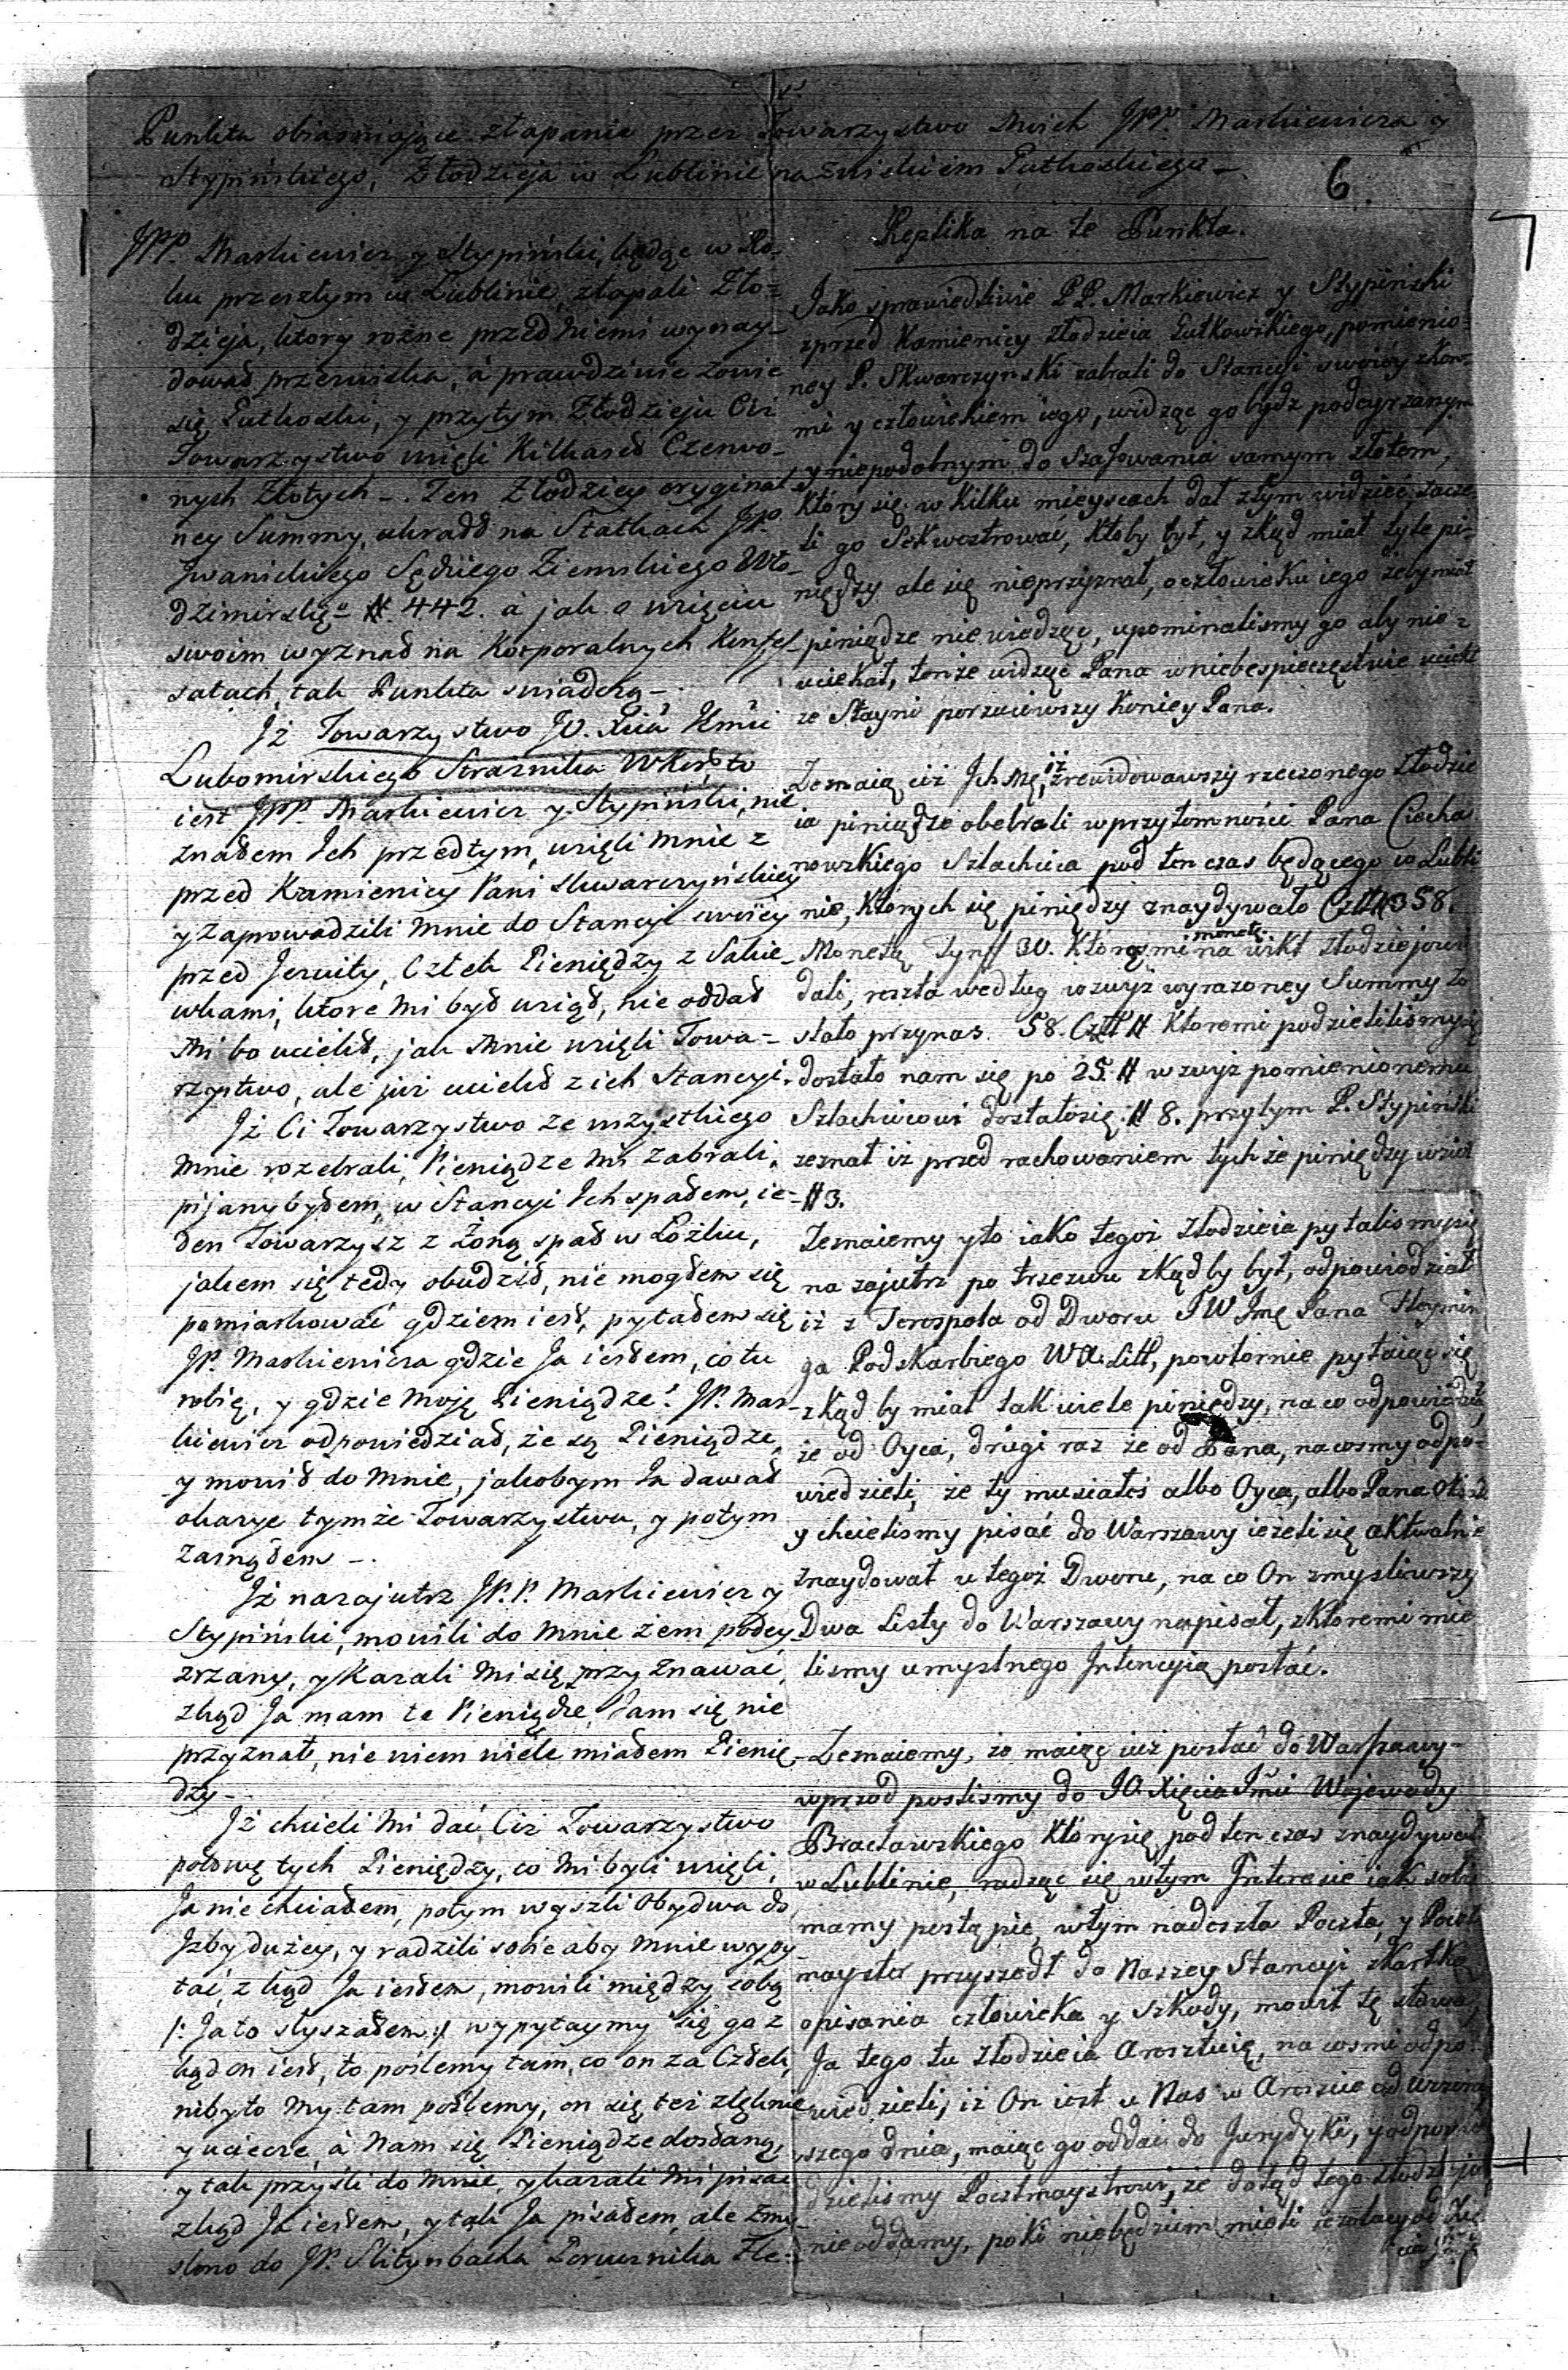 Punkta obiasniające złapanie przez Towarzystwo Mnich JPP. Markiewicza y
Stypińskiego, Złodzieja w Lublinie nazwiskiem Gutkoskiego –.
6.
JPP. Markiewicz y Stypiński, będąc w Ro-
ku przeszłym w Lublinie, złapali Zło-
dzieja, ktory rożne przed niemi wynay-
dował przezwiska, á prawdziwie zowie
się Gutkoski, y przytym Złodzieju Ciż
Towarzystwo wzięli Kilkaset Czerwo-
nych Złotych –. Ten Złodziey oryginal-
ney Summy, ukradł na Statkach JP.
Iwanickiego Sędziego Ziemskiego Wło-
dzimirskiego # 442. á jak o wzięciu
swoim wyznał na Korporalnych Konfes-
satach, tak Punkta swiadczą –.
Iż Towarzystwo JO. Xcia Jmci
Lubomirskiego Strażnika WKor. to
iest JPP. Markiewicz y Stypiński, nie
znałem Ich przedtym, wzięli mnie z
przed Kamienicy Pani Skwarczyńskiey
y zaprowadzili mnie do Stancyi swoiey
przed Jezuity, Człek Pieniędzy z Sakie-
wkami, ktore mi był wziął, nie oddał
Mi bo uciekł, jak Mnie wzięli Towa-
rzystwo, ale już uciekł z ich Stancyi.
Iż Ci Towarzystwo ze wszystkiego
mnie rozebrali, Pieniądze mi zabrali,
pijany byłem, w Stancyi Ich spałem, ie-
den Towarzysz z Żoną spał w Łóżku,
jakem się tedy obudził, nie mogłem się
pomiarkować gdziem iest, pytałem się
JP. Markiewicza gdzie Ja iestem, co tu
robię, y gdzie moję Pieniądze? JP. Mar-
kiewicz odpowiedział, że są Pieniądze,
y mowił do mnie, jakobym Ja dawał
okazye tymże Towarzystwu, y potym
zasnąłem –.
Iż nazajutrz JP.P. Markiewicz y
Stypiński, mowili do mnie żem podey-
zrzany, y Kazali mi się przyznawać,
zkąd Ja mam te Pieniądze, Jam się nie
przyznał, nie wiem wiele miałem Pienię-
dzy –
Iż chcieli mi dać Ciż Towarzystwo
połowę tych Pieniędzy, co mi byli wzięli,
Ja nie chciałem, potym wyszli Obydwa do
Izby dużey, y radzili sobie aby mnie wypy-
tać, zkąd Ja iestem, mowili między sobą
/: Ja to słyszałem :/ wypytaymy się go z
kąd on iest, to poślemy tam, co on za Człek,
niby to my tam poślemy, on się też zlęknie
y uciecze, á Nam się Pieniądze dostaną,
y tak przyśli do mnie, y kazali mi pisać
zkąd Ja iestem, y tak Ja pisałem, ale zmy-
slono do JP. Slitynbacha Porucznika Fle-
Replika na te Punkta.
Jako sprawiedliwie P.P. Markiewicz y Stypiński
zprzed Kamienicy złodzieia Gutkowskiego, pomienio-
ney P. Skwarczynski zabrali do Stancyi swoiey zKoń-
mi y człowiekiem iego, widząc go bydz podeyrzanym
y niepodobnym do Szafowania samym złotem,
Ktory się w Kilku mieyscach dał z tym widzieć, zacze-
li go Sekwestrować, Ktoby był, y zkąd miał tyle pi-
niędzy ale się nieprzyznał, o człowieku iego żeby miał
piniądze nie wiedząc, upominaliśmy go aby nie
uciekał, tenże widząc Pana w niebespieczęstwie uciekł
ze Stayni porzuciwszy Koniey Pana.
Zeznaią ciż JchMę, iż zrewidowawszy rzeczonego złodzie
ia piniądze obebrali w przytomności Pana Ciecha
nowskiego Szlachcica pod ten czas będącego w Lubli
nie, Ktorych się piniędzy znaydywało CzZł # 358.
Monetą Tynff 30. Ktorąsmi monetę na wikt złodziejowi
dali, reszta według wzwyż wyrazoney Summy zo
stało przynas. 58. CzZł # Ktoremi podzieliliśmy się
dostało nam się po 25. # wzwyż pomienionemu
Szlachcicowi dostałosię # 8. przytym P. Stypiński
zeznał iż przed rachowaniem tychże piniędzy wziął
# 3.
Zeznaiemy y to iako tegoż złodzieia pytaliśmysię
na zajutrz po trzezwu zkądby był, odpowiedział
iż z Terespola od Dworu JW Jmę Pana Flemin
ga Podskarbiego WX. Litt, powtornie pytaiąc się
zkąd by miał tak wiele piniędzy, na co odpowiedział
że od Oyca, drugi raz że od Pana, nacosmy odpo-
wiedzieli, że ty musiałeś albo Oyca, albo Pana Okraść
y chcielismy pisać do Warszawy ieżeli się aktualnie
znaydował u tegoż Dworu, na co On zmysliwszy
Dwa Listy do Warszawy napisał, zKtoremi mie
lismy umyslnego Jntencyią posłać.
Zeznaiemy, że maiąc iuż posłać do Warszawy
wprzod poslismy do JO. Xięcia Jmci Wojewody
Bracławskiego Ktorysię pod ten czas znaydywał
w Lublinie, radząc się wtym Jnteresie iak sobie
mamy postąpić, wtym nadeszła Poczta, y Poczt
mayster przyszedł do Naszey Stancyi zKartką
opisania człowieka y Szkody, mowił tę słowa,
Ja tego tu złodzieia Aresztuię, na cosmi odpo
wiedzieli, iż On iest u Nas w Areszcie od wczora
szego dnia, maiąc go oddać do Jurydyki, y odpowie
dzielismy Pocztmaystrowi, że dotąd tego złodzieja
nie oddamy, poki niebędziem mieli rezolucyi od Xię